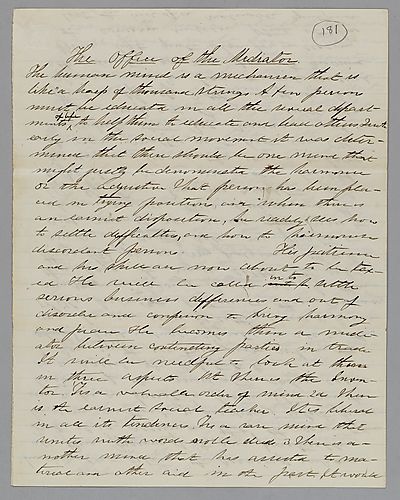 181
The Office of the Mediator.
The human mind is a mechanism that is
like a harp of thousand strings A few person
must be educated in all the several depart-
ments of life to help them to educate and lead others
early in the social movement it was deter-
mined that there should be one mind that
might justly be denominated the harmonizer
or the adjustor That person has been pla-
ced in trying position, and when there is
an earnest disposition, he readily sees how
to settle difficulties, and how to harmonize
discordant persons. His patience
and his skill are now about to be tax-
ed He will be called into to settle
serious business differences and out of
disorder and confusion to bring harmony
and peace He becomes then a medi-
ator between contending parties in trade
It will be needful to look at them
in three aspects 1st There is the inven-
tor Tis a valuable order of mind 2d There
is the earnest social teacher It is liberal
in all its tendencies Tis a rare mind that
unites with words noble deed 3 There is a-
nother mind that has assisted to ma-
terial and other aid in the past, It would